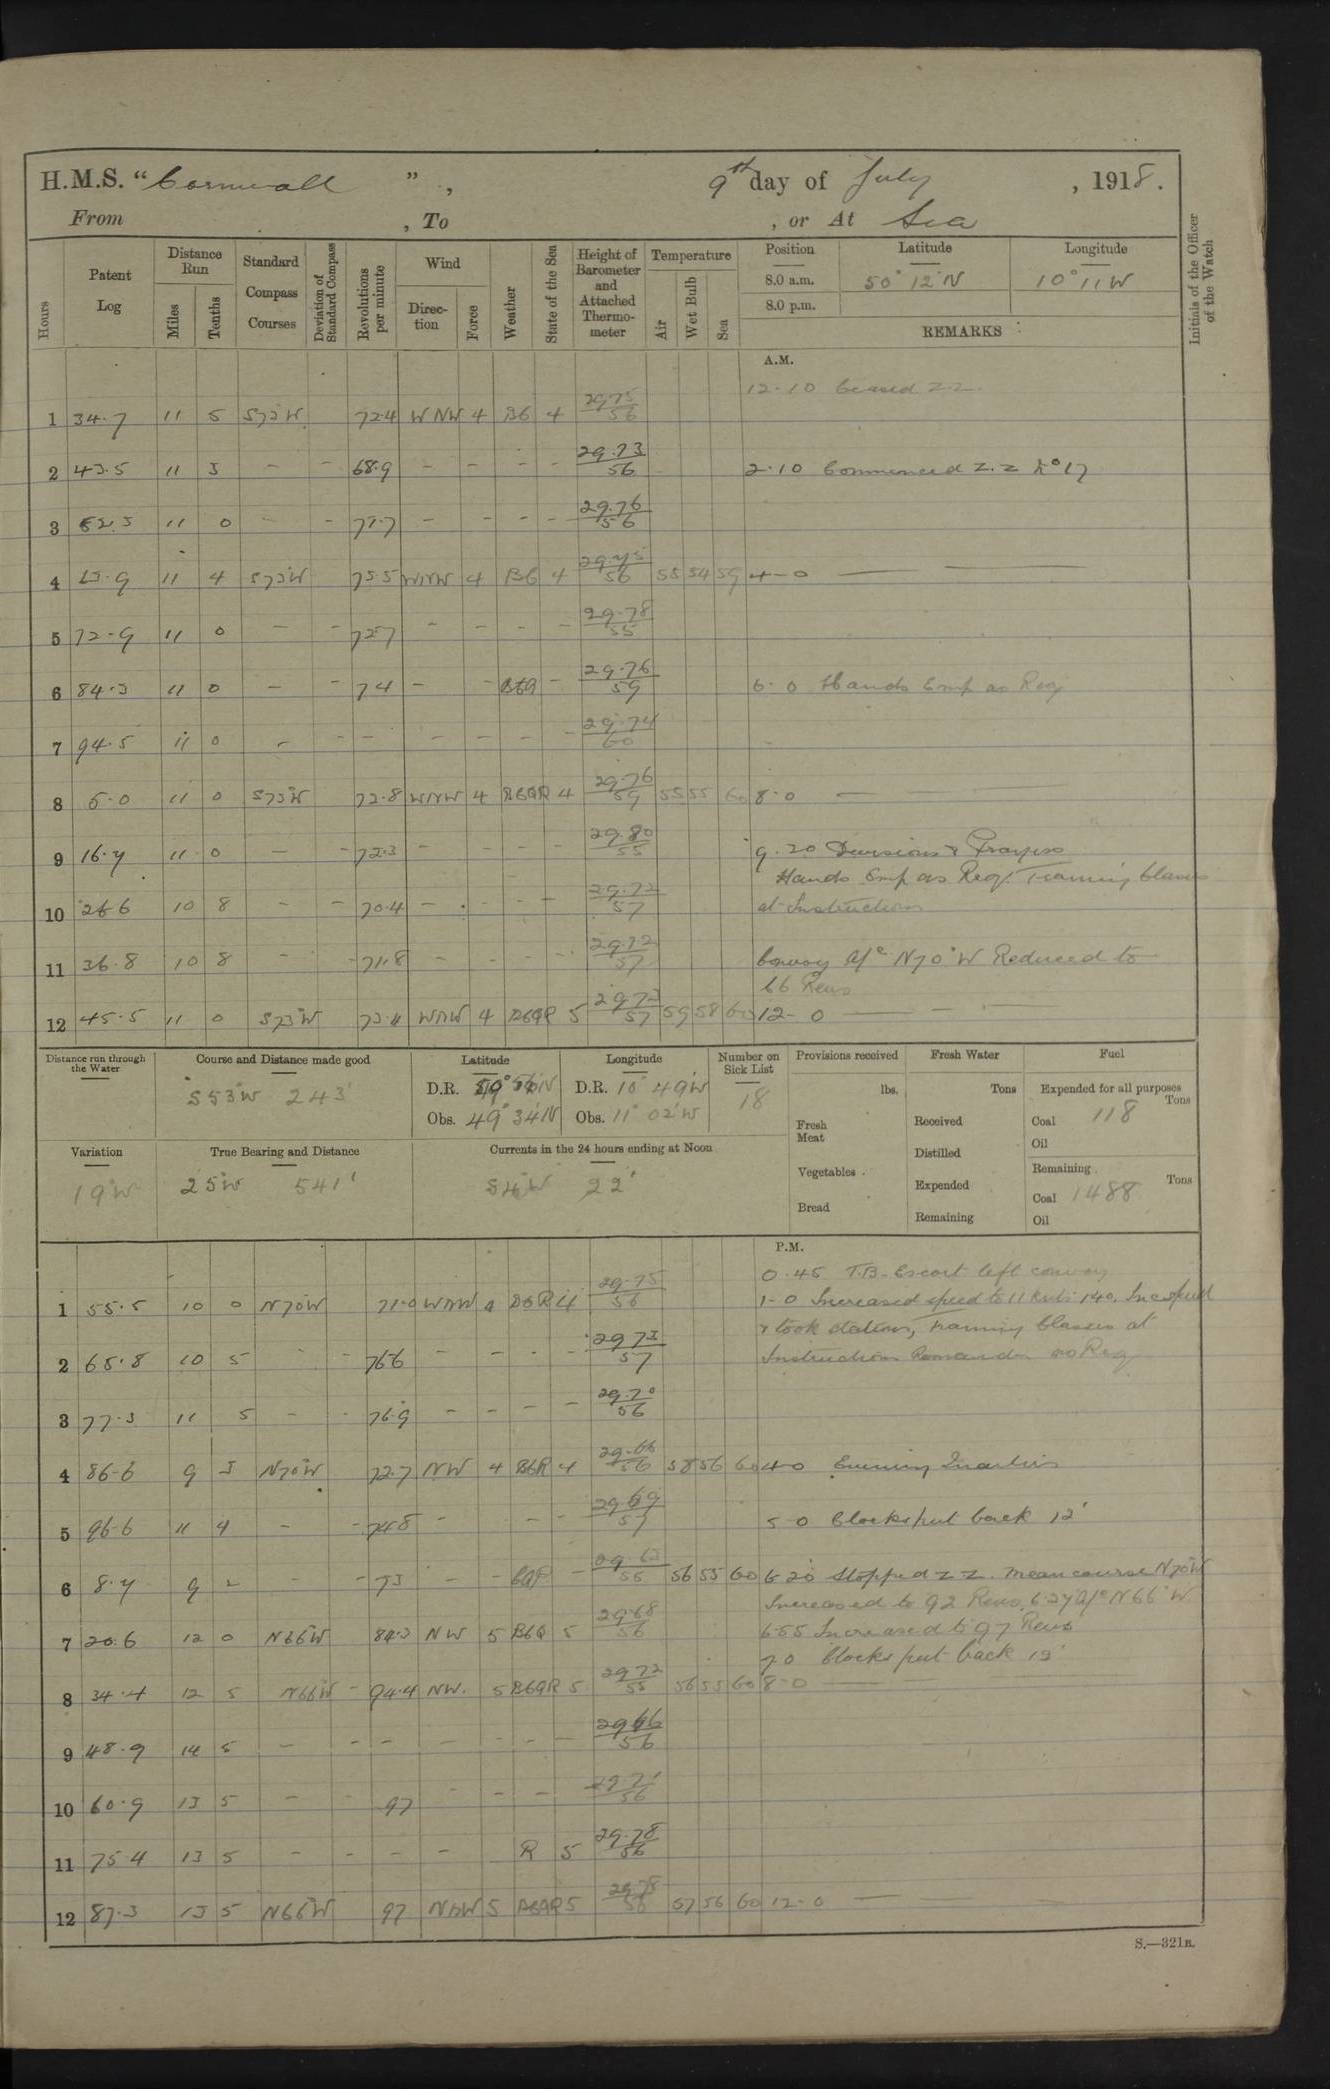 H.M.S. "Cornwall", 9th day of July, 1918.
From , To , or At Sea
Hours
Patent Log
Distance Run
Miles
Tenths
Standard Compass Courses
Deviation of Standard Compass
Revolutions per minute
Wind
Direction
Force
Weather
State of the Sea
Height of Barometer and Attached Thermometer
Temperature
Air
Wet Bulb
Sea
Position Latitude Longitude
8.0 a.m. 50° 12' N 10° 11' W
8.0 p.m.
REMARKS
Initials of the Officer of the Watch
A.M.
12.10 Ceased Z.Z.
1 34.7 11 5 S73W 72.4 WNW 4 BC 4 29.75 56
2 43.5 11 3 - - 68.9 - - - - 29.73 56 2.10 Commenced Z.Z No 17
3 11 0 - - - - - - 29.76 56
4 11 4 S73W 75.5 WNW 4 BC 4 56 55 54 59 4-0
5 72.9 11 0 - - 72.7 - - - - 29.78 55
6 84.3 11 0 - - 74 - - - 29.76 59 6-0 Hands Emp as Req
7 94.5 11 0 - - - - - - - 29.74 60
8 11 0 S73W 72.8 WNW 4 BCQR 4 29.76 59 55 55 60 8-0
9 16.7 11 0 - - 72.3 - - - - 29.80 55 9.20 Divisions & Prayers
Hands Emp as Req. Training Classes
10 26.6 10 8 - - 70.4 - - - - 29.72 57 at Instruction
11 36.8 10 8 - - 71.8 - - - - 29.72 57 Convoy A/c N70°W Reduced to
66 Revs
12 45.5 11 0 S73W WNW 4 BCQR 5 29.73 57 59 58 60 12-0
Distance run through the Water
Course and Distance made good
S53W 243'
Latitude
D.R.
Obs. 49° 34'N
Longitude
D.R. 10° 49'W
Obs. 11° 02'W
Number on Sick List
18
Provisions received
lbs.
Fresh Meat
Vegetables
Bread
Fresh Water
Tons
Received
Distilled
Expended
Remaining
Fuel
Expended for all purposes
Tons
Coal 118
Oil
Remaining
Tons
Coal 1488
Oil
Variation
19W
True Bearing and Distance
25W 541'
Currents in the 24 hours ending at Noon
22'
P.M.
0.45 T.B. Escort left convoy
1 55.5 10 0 N70W 71.0 WNW 4 4 29.75 56 1-0 Increased speed to 11 Knots
& took station, Training Classes at
2 65.8 10 5 - - 76.6 - - - - 29.73 57 Instruction Remainder as Req
3 77.3 11 5 - - 76.9 - - - - 29.70 56
4 86.6 9 3 N70W 72.7 NW 4 BCR 4 29.66 56 58 56 60 4-0 Evening Quarters
5 96.6 11 4 - - 74.8 - - - 29.69 57 5-0 Clocks put back 12'
6 8.7 9 2 - - 73 - - CQR - 56 55 60 6.20 Stopped Z Z. Mean course N70W
Increased to 92 Revs. 6.27 A/c N66°W.
7 20.6 12 0 N66W 84.3 NW 5 BCQ 5 29.68 56 6.55 Increased to 97 Revs
7.0 Clocks put back 13'
8 34.4 12 5 N66W - 94.4 NW. 5 BCQR 5 29.72 55 56 55 60 8-0
9 48.9 14 5 - - - - - - - 29.66 56
10 60.9 13 5 - - 97 - - - 56
11 75.4 13 5 - - - - R 5 29.78 56
12 87.3 13 5 N66W 97 5 BCQR 5 29.78 56 57 56 60 12-0
S.—321B.